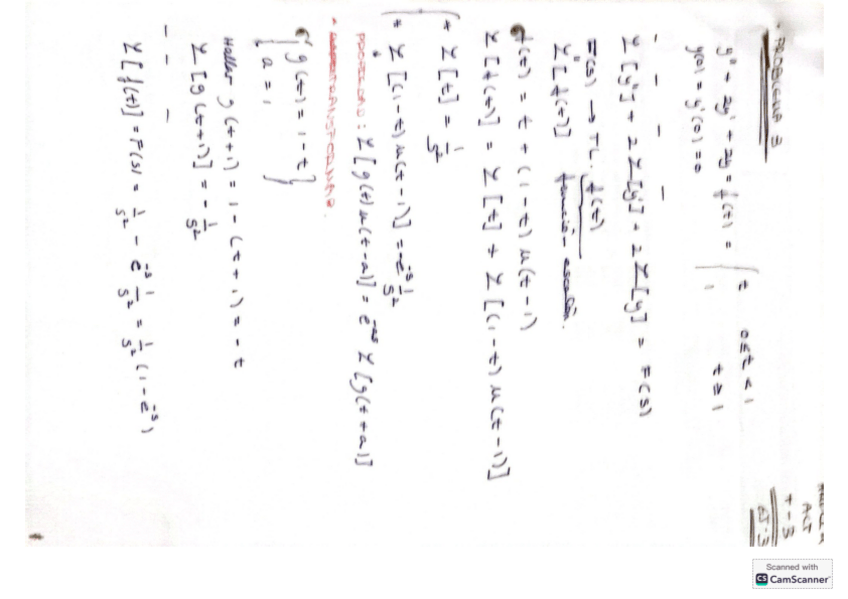 • PROBLEMA 3
y'' + 2y' + 2y = f(t) = { t 0≤t<1
1 t≥1
y(0) = y'(0) = 0
ℒ[y''] + 2ℒ[y'] + 2ℒ[y] = F(s)
F(s) → TL. f(t)
ℒ[f(t)] función escalón.
f(t) = t + (1-t) u(t-1)
ℒ[f(t)] = ℒ[t] + ℒ[(1-t) u(t-1)]
* ℒ[t] = 1/s²
* ℒ[(1-t) u(t-1)] = -e^-s 1/s²
PROPIEDAD: ℒ[g(t) u(t-a)] = e^-as ℒ[g(t+a)]
{ g(t) = 1-t }
{ a = 1
Hallar g(t+1) = 1 - (t+1) = -t
ℒ[g(t+1)] = -1/s²
ℒ[f(t)] = F(s) = 1/s² - e^-s 1/s² = 1/s² (1-e^-s)
ACT
T-3
Scanned with
CS CamScanner